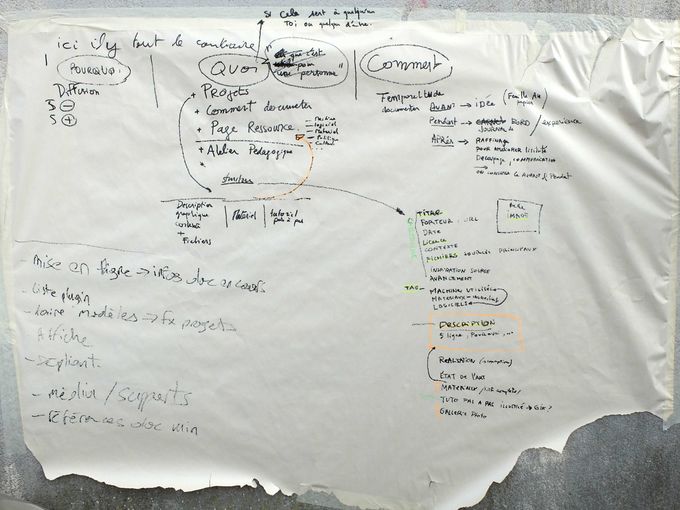 Si Cela sert à quelqu'un
Toi ou quelqu'un d'autre.
ici il y tout le contraire
POURQUOI
Diffusion
S -
S +
QUOI
"
que c'est
pour
une personne"
+ Projets
+ Comment documenter
+ Page Ressource
Machine
logiciel
Matériel
Politique
+ Atelier Pedagogique
+
Description
graphique
contexte
+
Fichiers
Matériel
tutoriel
pas à pas
Comment
Temporalité de
documenter
AVANT → IDÉE (Feuille de
papier
Pendant → BORD / expérience
JOURNAL de
Après → RAFFINAGE
pour améliorer lisibilité
Decoupage, communication
TITRE
PORTEUR, URL
DATE
Licence
CONTEXTE
FICHIERS SOURCES PRINCIPAUX
INSPIRATION SOURCE
AVANCEMENT
IMAGE
TAG
MACHINE UTILISÉE
MATERIAUX
LOGICIELS
DESCRIPTION
5 ligne, Pourquoi, ...
REALISATION (conception)
ÉTAT DE L'ART
MATERIAUX
TUTO PAS A PAS ILLUSTRÉ → GIF?
GALLERIE PHOTO
- mise en ligne → infos doc en cours
- Liste plugin
- Faire modèles → fx projets
Affiche
- Dépliant
- média / supports
- références doc min